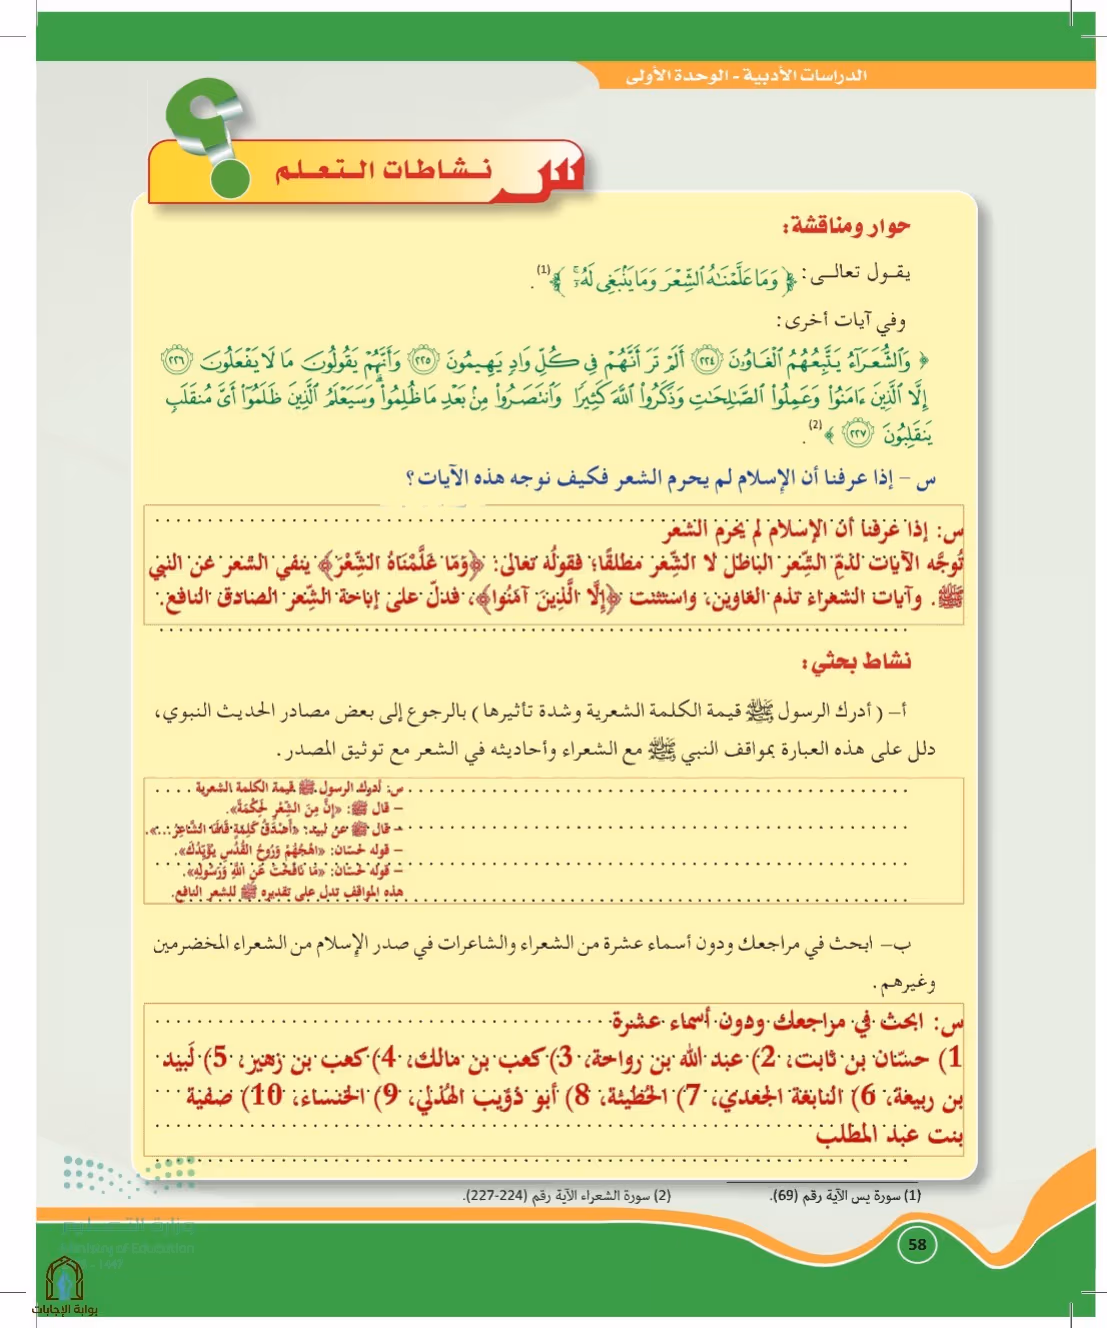 الدراسات الأدبية - الوحدة الأولى
؟
س نشاطات التعلم
حوار ومناقشة:
يقول تعالى: ﴿ وَمَا عَلَّمْنَاهُ الشِّعْرَ وَمَا يَنْبَغِي لَهُ ۚ ﴾(1).
وفي آيات أخرى:
﴿ وَالشُّعَرَاءُ يَتَّبِعُهُمُ الْغَاوُونَ ٢٢٤ أَلَمْ تَرَ أَنَّهُمْ فِي كُلِّ وَادٍ يَهِيمُونَ ٢٢٥ وَأَنَّهُمْ يَقُولُونَ مَا لَا يَفْعَلُونَ ٢٢٦
إِلَّا الَّذِينَ ءَامَنُوا وَعَمِلُوا الصَّالِحَاتِ وَذَكَرُوا اللَّهَ كَثِيرًا وَانتَصَرُوا مِنْ بَعْدِ مَا ظُلِمُوا وَسَيَعْلَمُ الَّذِينَ ظَلَمُوا أَيَّ مُنقَلَبٍ
يَنقَلِبُونَ ٢٢٧ ﴾(2).
س – إذا عرفنا أن الإسلام لم يحرم الشعر فكيف نوجه هذه الآيات؟
س: إذا عرفنا أن الإسلام لم يحرم الشعر
تُوجَّه الآيات لذمّ الشِّعر الباطل لا الشِّعر مطلقًا؛ فقولُه تعالى: ﴿وَمَا عَلَّمْنَاهُ الشِّعْرَ﴾ ينفي الشعر عن النبي
ﷺ. وآيات الشعراء تذم الغاوين، واستثنت ﴿إِلَّا الَّذِينَ آمَنُوا﴾، فدلّ على إباحة الشِّعر الصادق النافع.
نشاط بحثي:
أ– ( أدرك الرسول ﷺ قيمة الكلمة الشعرية وشدة تأثيرها ) بالرجوع إلى بعض مصادر الحديث النبوي،
دلل على هذه العبارة بمواقف النبي ﷺ مع الشعراء وأحاديثه في الشعر مع توثيق المصدر .
س: أدرك الرسول ﷺ قيمة الكلمة الشعرية
– قال ﷺ: «إِنَّ مِنَ الشِّعْرِ لَحِكْمَةً».
– قال ﷺ عن لبيد: «أَصْدَقُ كَلِمَةٍ قَالَهَا الشَّاعِرُ ...».
– قوله لحسّان: «اهْجُهُمْ وَرُوحُ القُدُسِ يُؤَيِّدُكَ».
– قوله لحسّان: «مَا نَافَحْتَ عَنِ اللَّهِ وَرَسُولِهِ».
هذه المواقف تدل على تقديره ﷺ للشعر النافع.
ب– ابحث في مراجعك ودون أسماء عشرة من الشعراء والشاعرات في صدر الإسلام من الشعراء المخضرمين
وغيرهم .
س: ابحث في مراجعك ودون أسماء عشرة
1) حسّان بن ثابت، 2) عبد الله بن رواحة، 3) كعب بن مالك، 4) كعب بن زهير، 5) لَبيد
بن ربيعة، 6) النابغة الجعدي، 7) الحُطيئة، 8) أبو ذؤيب الهُذلي، 9) الخنساء، 10) صفية
بنت عبد المطلب
(1) سورة يس الآية رقم (69).
(2) سورة الشعراء الآية رقم (224-227).
وزارة التعليم
Ministry of Education
58
بوابة الإجابات